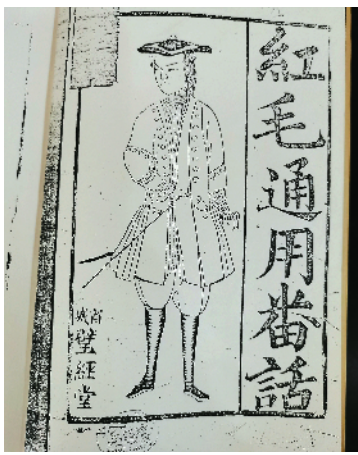 紅毛通用番話
省城璧經堂